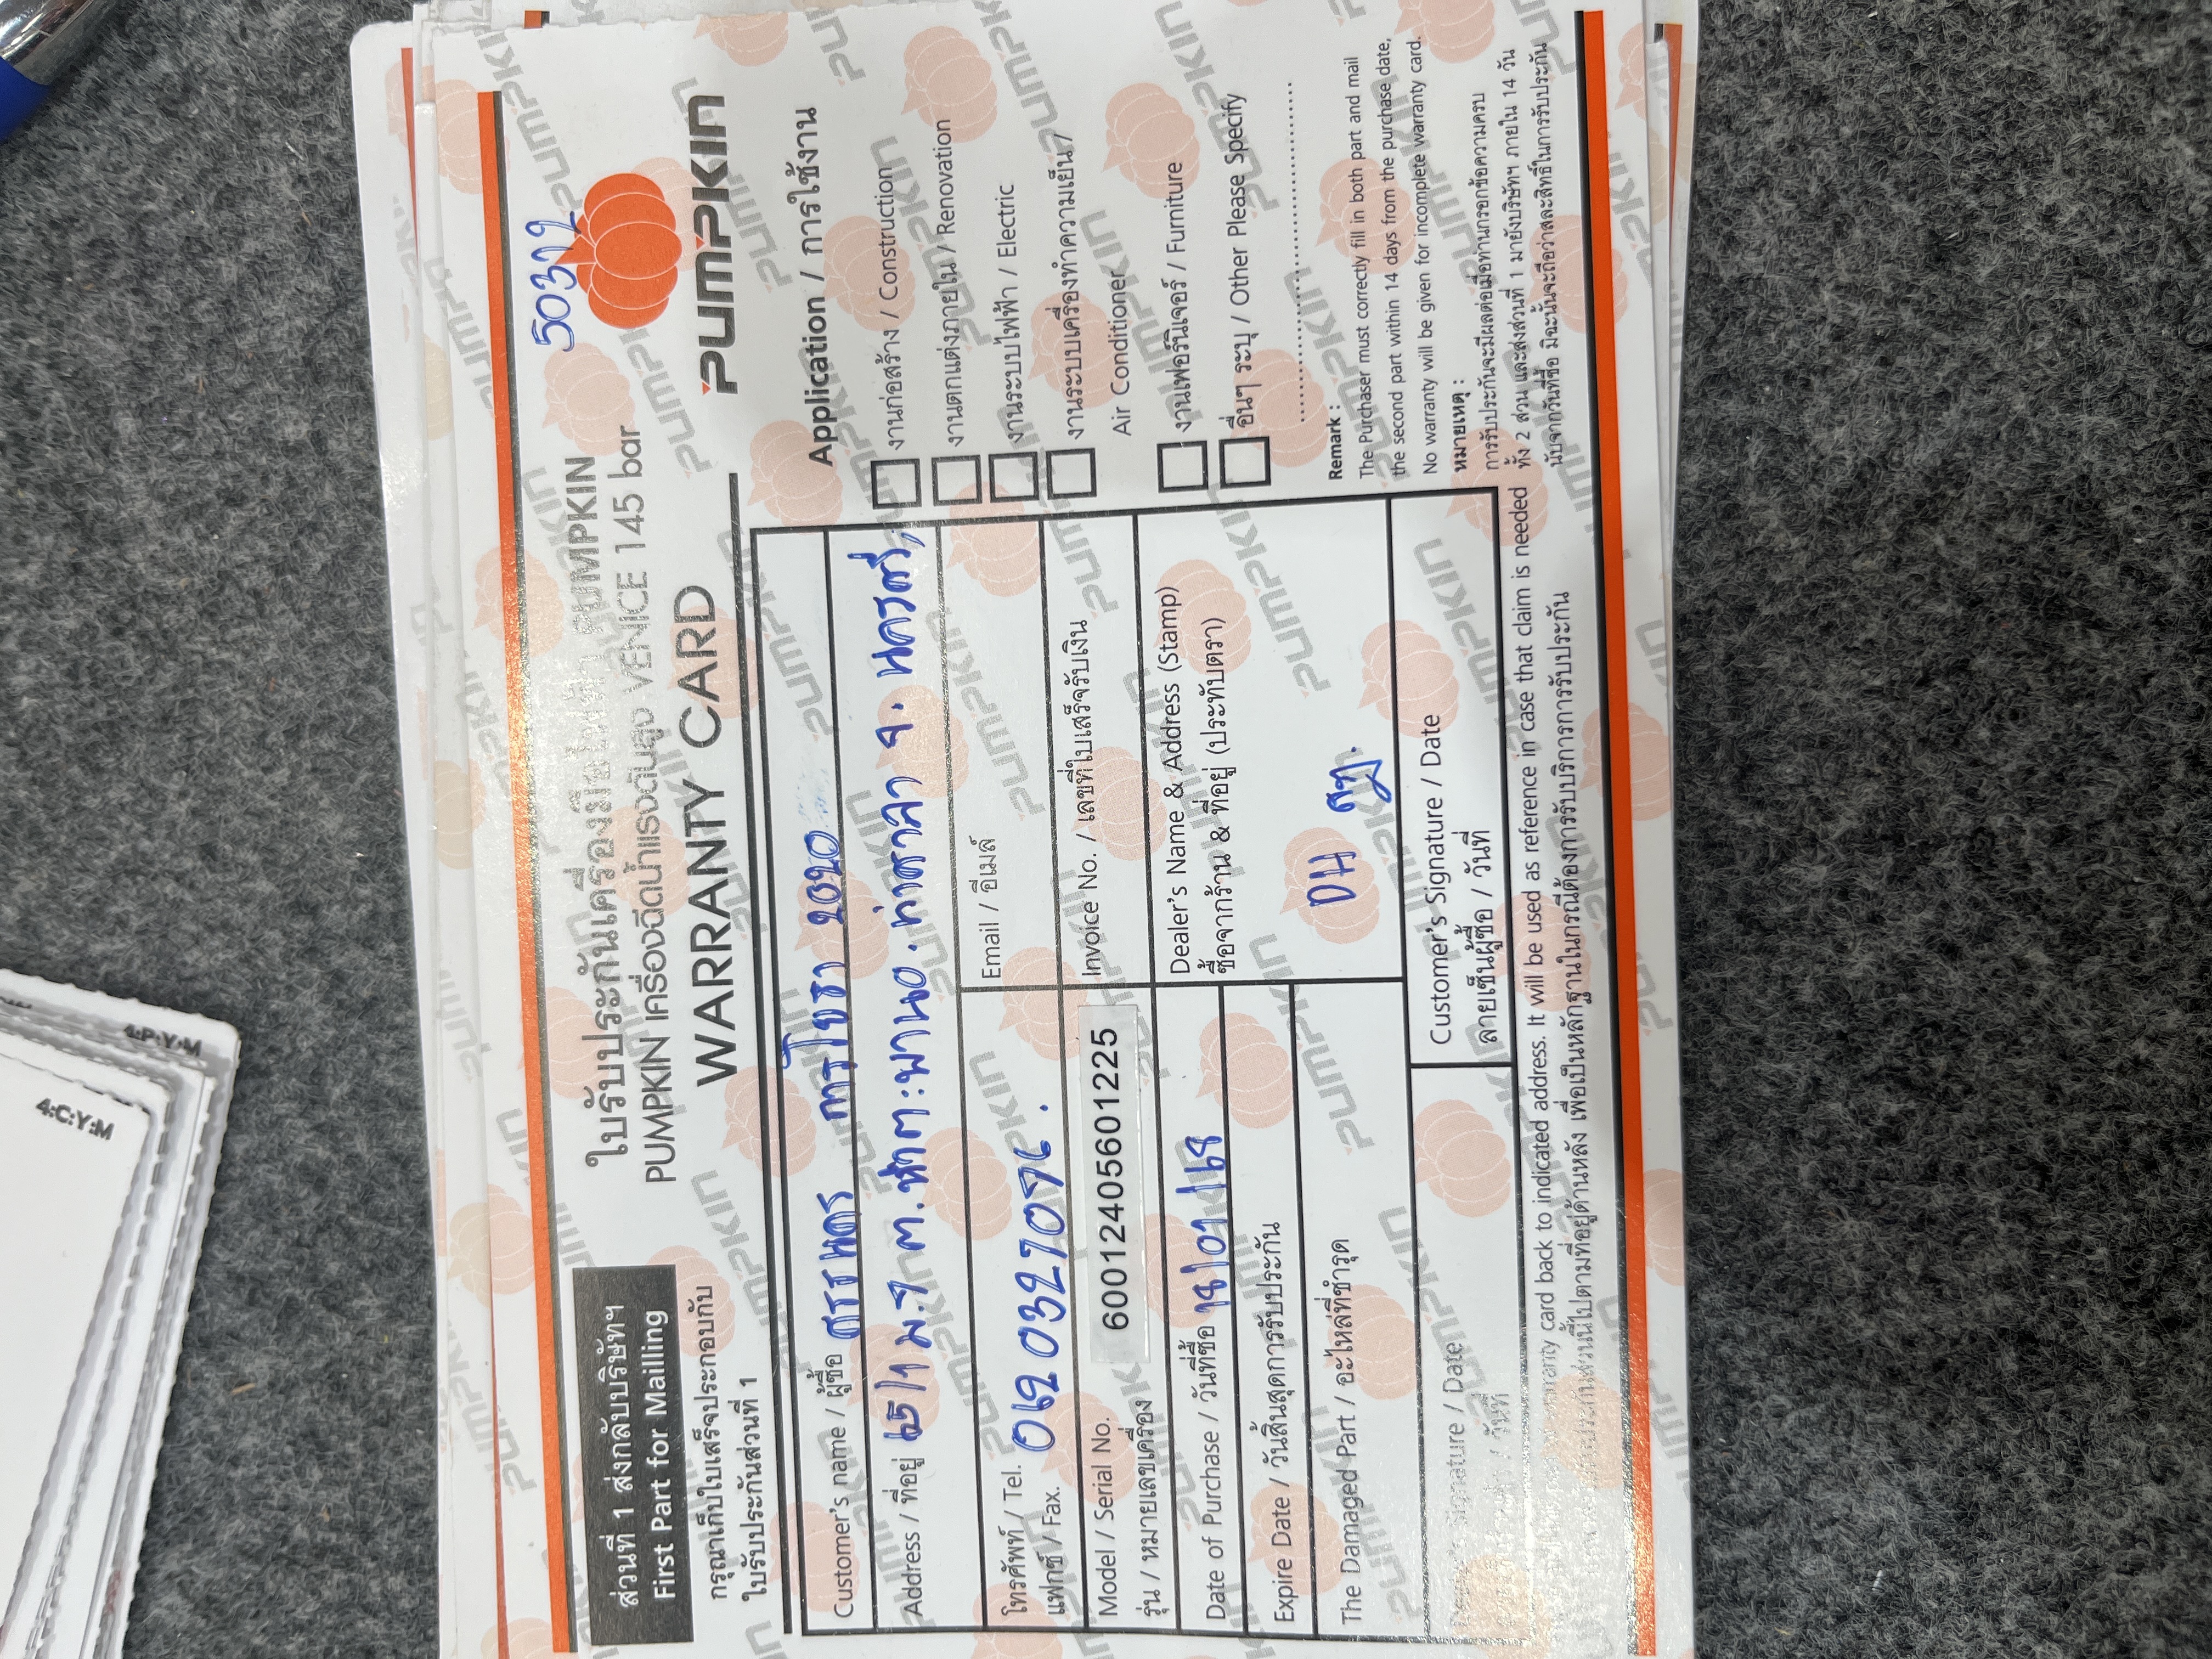 50312
ส่วนที่ 1 ส่งกลับบริษัทฯ
First Part for Mailling
กรุณาเก็บใบเสร็จประกอบกับ
ใบรับประกันส่วนที่ 1
ใบรับประกันเครื่องมือไฟฟ้า PUMPKIN
PUMPKIN เครื่องฉีดน้ำแรงดันสูง VENICE 145 bar
WARRANTY CARD
PUMPKIN
Customer's name / ผู้ซื้อ การโยธา 2020
Address / ที่อยู่ 65/1 ม.7 ต. อ.ท่าศาลา จ. นครศรีฯ
โทรศัพท์ / Tel.
แฟกซ์ / Fax.
Email / อีเมล์
Model / Serial No. 60012405601225
รุ่น / หมายเลขเครื่อง
Invoice No. / เลขที่ใบเสร็จรับเงิน
Date of Purchase / วันที่ซื้อ
Expire Date / วันสิ้นสุดการรับประกัน
The Damaged Part / อะไหล่ที่ชำรุด
Dealer's Name & Address (Stamp)
ซื้อจากร้าน & ที่อยู่ (ประทับตรา)
DH
Signature / Date
/ วันที่
Customer's Signature / Date
ลายเซ็นผู้ซื้อ / วันที่
Application / การใช้งาน
งานก่อสร้าง / Construction
งานตกแต่งภายใน / Renovation
งานระบบไฟฟ้า / Electric
งานระบบเครื่องทำความเย็น /
Air Conditioner
งานเฟอร์นิเจอร์ / Furniture
อื่นๆ ระบุ / Other Please Specify
Remark :
The Purchaser must correctly fill in both part and mail
the second part within 14 days from the purchase date,
No warranty will be given for incomplete warranty card.
หมายเหตุ :
การรับประกันจะมีผลต่อเมื่อท่านกรอกข้อความครบ
ทั้ง 2 ส่วน และส่งส่วนที่ 1 มายังบริษัทฯ ภายใน 14 วัน
นับจากวันที่ซื้อ มิฉะนั้นจะถือว่าสละสิทธิ์ในการรับประกัน
warranty card back to indicated address. It will be used as reference in case that claim is needed
รับประกันส่วนนี้ไปตามที่อยู่ด้านหลัง เพื่อเป็นหลักฐานในกรณีต้องการรับบริการการรับประกัน
4:P:Y:M
4:C:Y:M